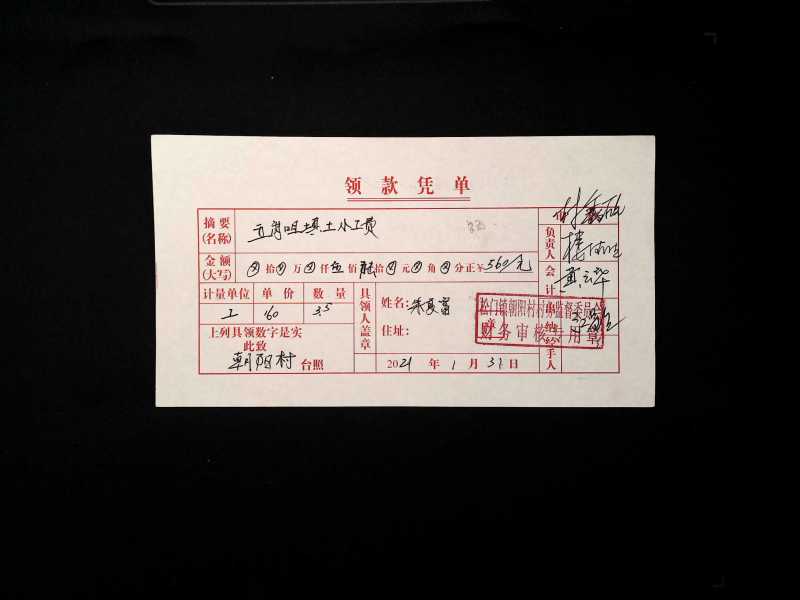 领款凭单
摘要(名称) 五岗咀填土小工费
金额(大写) ⊗拾⊗万⊗仟伍佰陆拾⊗元⊗角⊗分正¥560元
计量单位 单价 数量
工 160 3.5
上列具领数字是实
此致
朝阳村 台照
具领人盖章
姓名: 朱夏富
住址:
2021 年 1 月 31 日
松门镇朝阳村村务监督委员会
财务审核专用章
负责人
会计
出纳
经手人